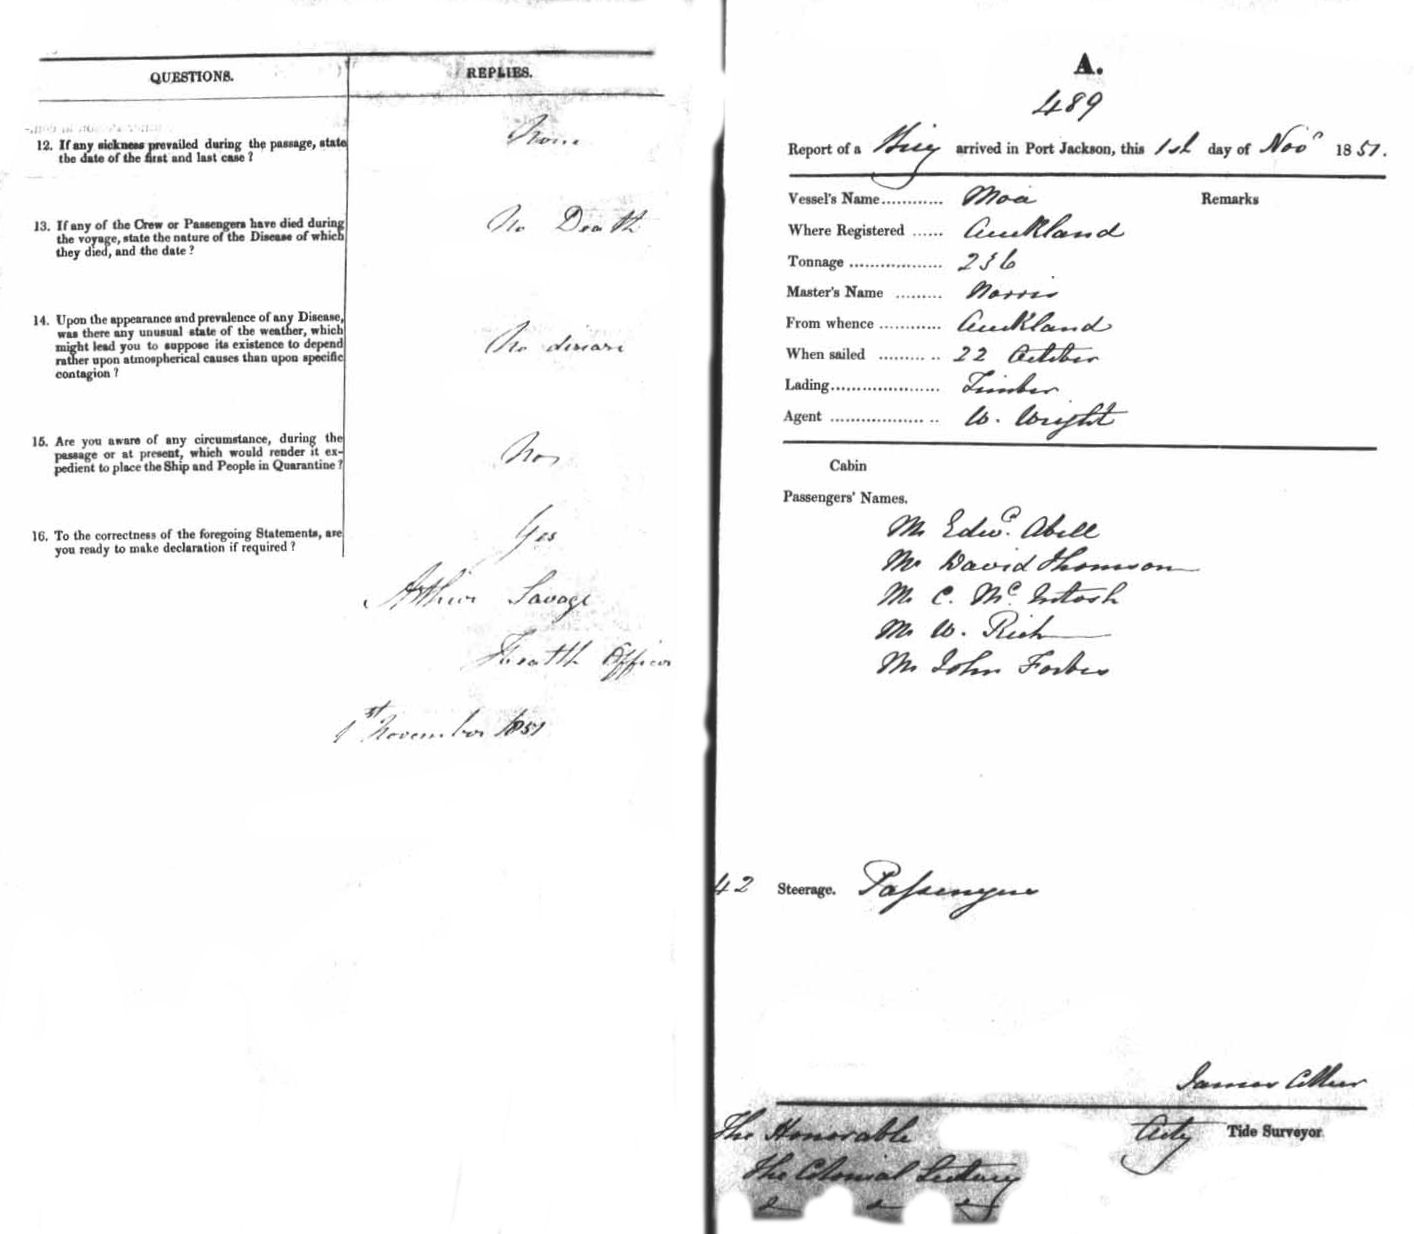 QUESTIONS.
REPLIES.
12. If any sickness prevailed during the passage, state
the date of the first and last case ?
None
13. If any of the Crew or Passengers have died during
the voyage, state the nature of the Disease of which
they died, and the date ?
No Death
14. Upon the appearance and prevalence of any Disease,
was there any unusual state of the weather, which
might lead you to suppose its existence to depend
rather upon atmospherical causes than upon specific
contagion ?
No disease
15. Are you aware of any circumstance, during the
passage or at present, which would render it ex-
pedient to place the Ship and People in Quarantine ?
No
16. To the correctness of the foregoing Statements, are
you ready to make declaration if required ?
Yes
Arthur Savage
Health Officer
1st November 1851
A.
489
Report of a Brig arrived in Port Jackson, this 1st day of Novr 1851.
Vessel's Name............ Moa
Remarks
Where Registered ...... Auckland
Tonnage .................. 236
Master's Name ......... Norris
From whence ............ Auckland
When sailed ......... .. 22 October
Lading..................... Timber
Agent .................. .. W. Wright
Cabin
Passengers' Names.
Mr Edwd. Abell
Mr David Thomson
Mr C. McIntosh
Mr W. Rich
Mr John Forbes
42 Steerage. Passengers
James
Actg Tide Surveyor
The Honorable
The Colonial Secretary